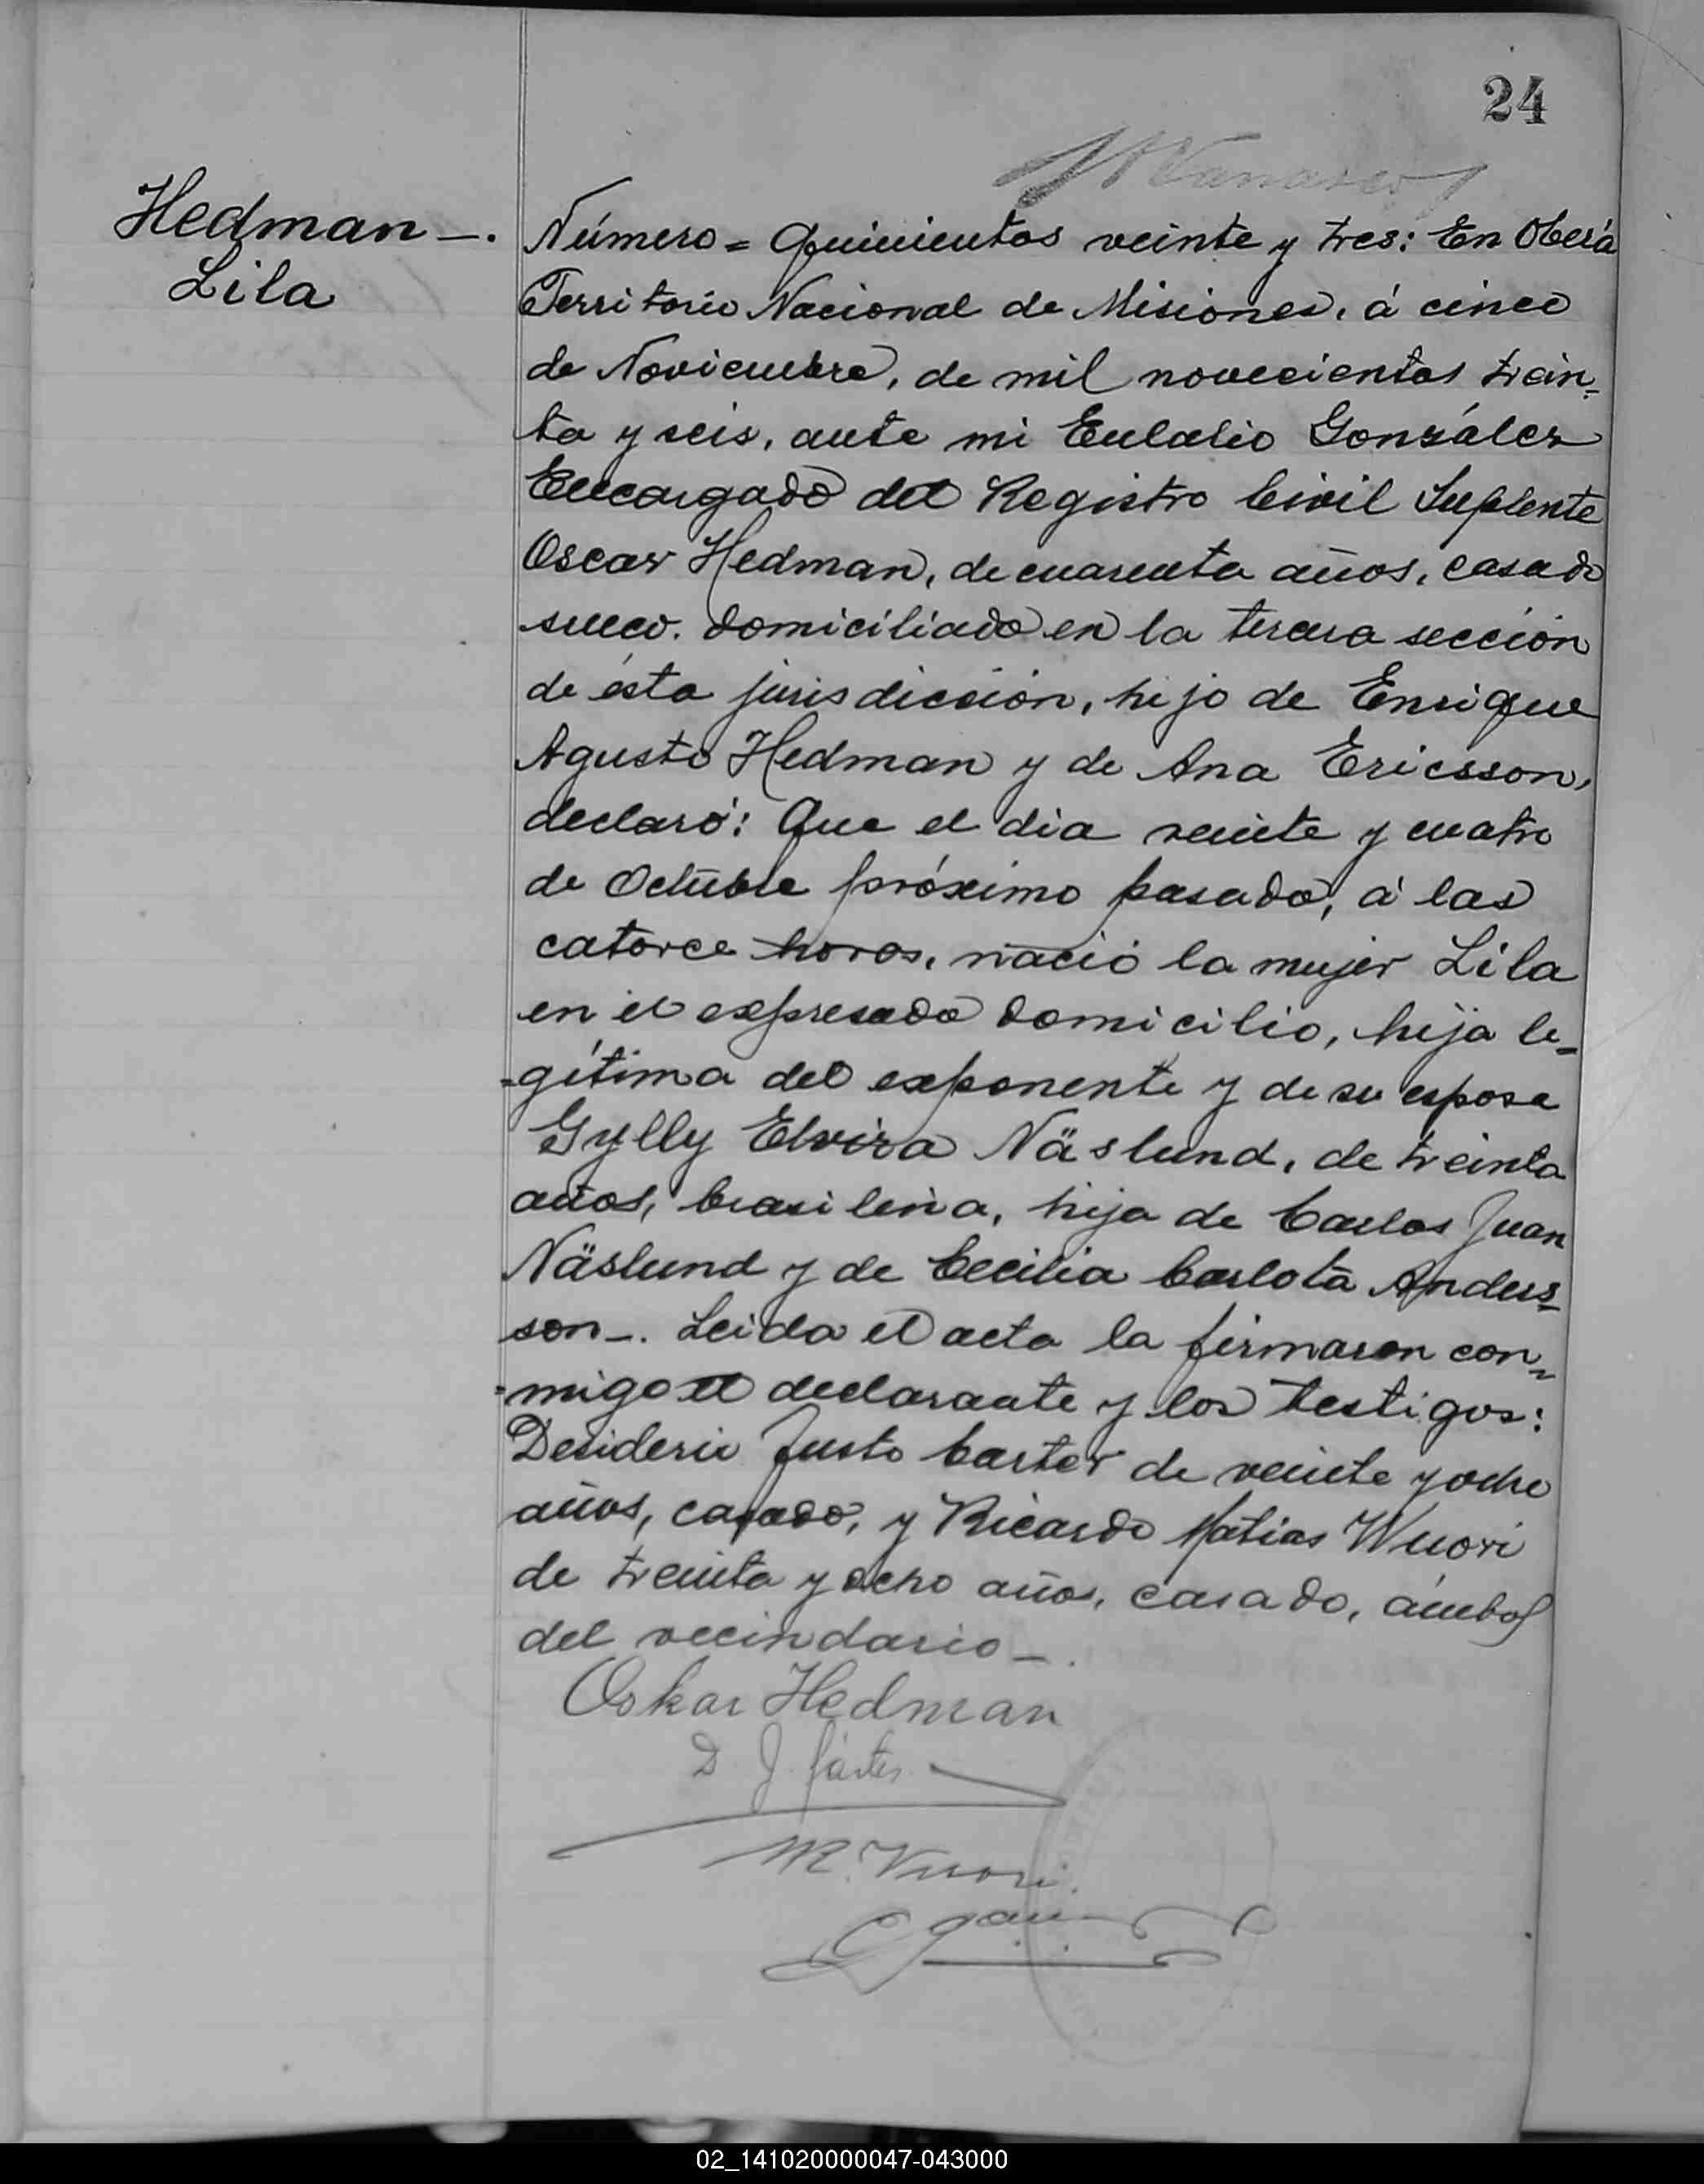 24
Hedman_.
Lila
Número = Quinientos veinte y tres: En Oberá
Territorio Nacional de Misiones, á cinco
de Noviembre, de mil novecientos trein=
ta y seis, ante mi Eulalio González
Encargado del Registro Civil Suplente
Oscar Hedman, de cuarenta años, casado
sueco. domiciliado en la tercera sección
de ésta jurisdicción, hijo de Enrique
Agusto Hedman y de Ana Ericsson,
declaró: Que el dia veinte y cuatro
de Octubre próximo pasado, á las
catorce horas, nació la mujer Lila
en el expresado domicilio, hija le=
=gítima del exponente y de su esposa
Gylly Elvira Näslund, de treinta
años, brasileña, hija de Carlos Juan
Näslund y de Cecilia Carlota Anders=
son_. Leida el acta la firmaron con=
=migo el declarante y los testigos:
Desiderio Justo Carter de veinte y ocho
años, casado, y Ricardo Matias Wuori
de treinta y ocho años, casado, ámbos
del vecindario_.
Oskar Hedman
D J. Carter
M. Vuori.
02_141020000047-043000